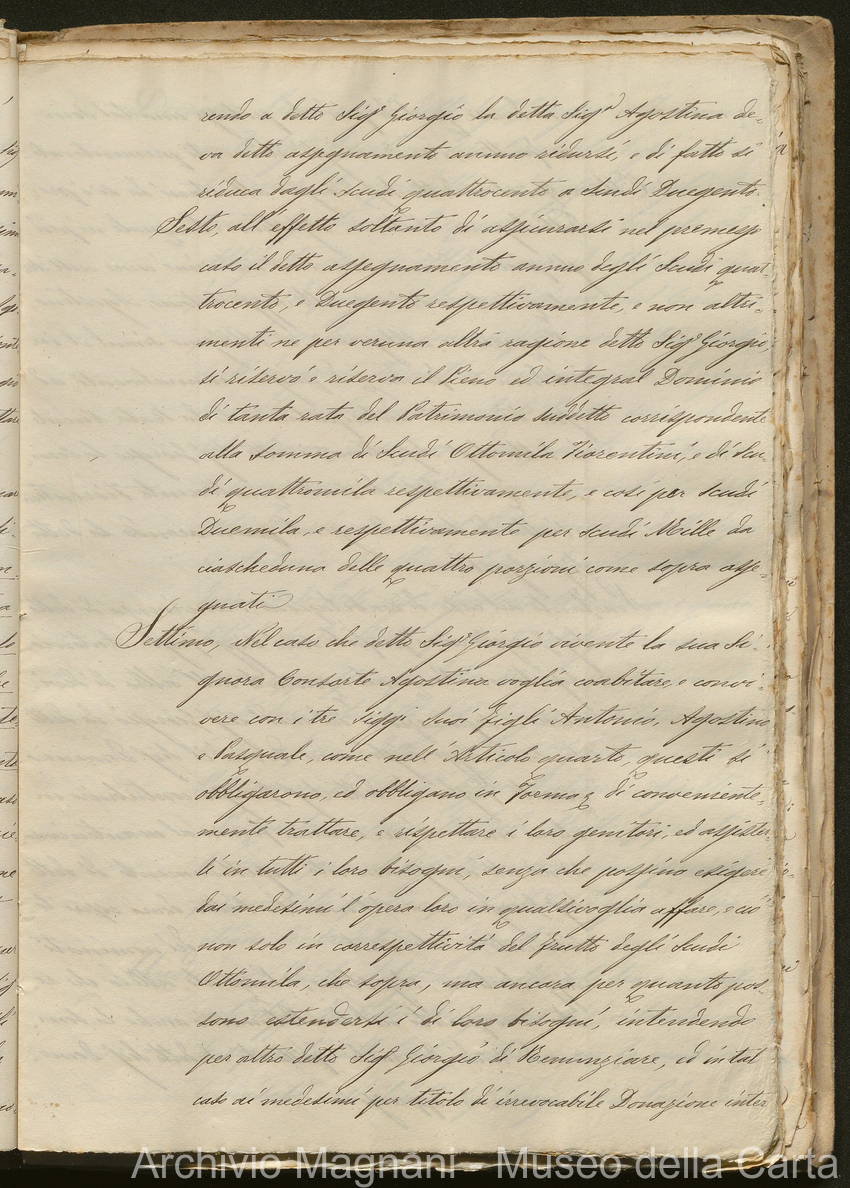 rendo a detto Sigr Giorgio la detta Sigra Agostina de-
va detto assegnamento annuo ridursi, e di fatto si
riduca dagli scudi quattrocento a Scudi Duegento.
Sesto, all'effetto soltanto di assicurarsi nel premesso
caso il detto assegnamento annuo degli Scudi quat-
trocento, e Duegento respettivamente, e non altri-
menti ne per veruna altra ragione detto Sigr Giorgio,
si riservò e riserva il Pieno ed integral Dominio
di tanta rata del Patrimonio suddetto corrispondente
alla somma di Scudi Ottomila Fiorentini, e di Scu-
di quattromila respettivamente, e così per scudi
Duemila, e respettivamente per scudi Mille da
ciascheduna delle quattro porzioni come sopra asse-
gnati
Settimo, Nel caso che detto Sigr Giorgio vivente la sua Si-
gnora Consorte Agostina voglia coabitare, e convi-
vere con i tre Siggi suoi figli Antonio, Agostino
e Pasquale, come nell'Articolo quarto, questi si
obbligarono, ed obbligano in Forma di conveniente-
mente trattare, e rispettare i loro genitori, ed assister-
li in tutti i loro bisogni, senza che possino esigere
dai medesimi l'opera loro in qualsivoglia affare, e ciò
non solo in correspettività del frutto degli Scudi
Ottomila, che sopra, ma ancora per quanto pos-
sono estendersi i di loro bisogni, intendendo
per altro detto Sigr Giorgio di Renunziare, ed in tal
caso ai medesimi per titolo di irrevocabile Donazione inter
Archivio Magnani - Museo della Carta